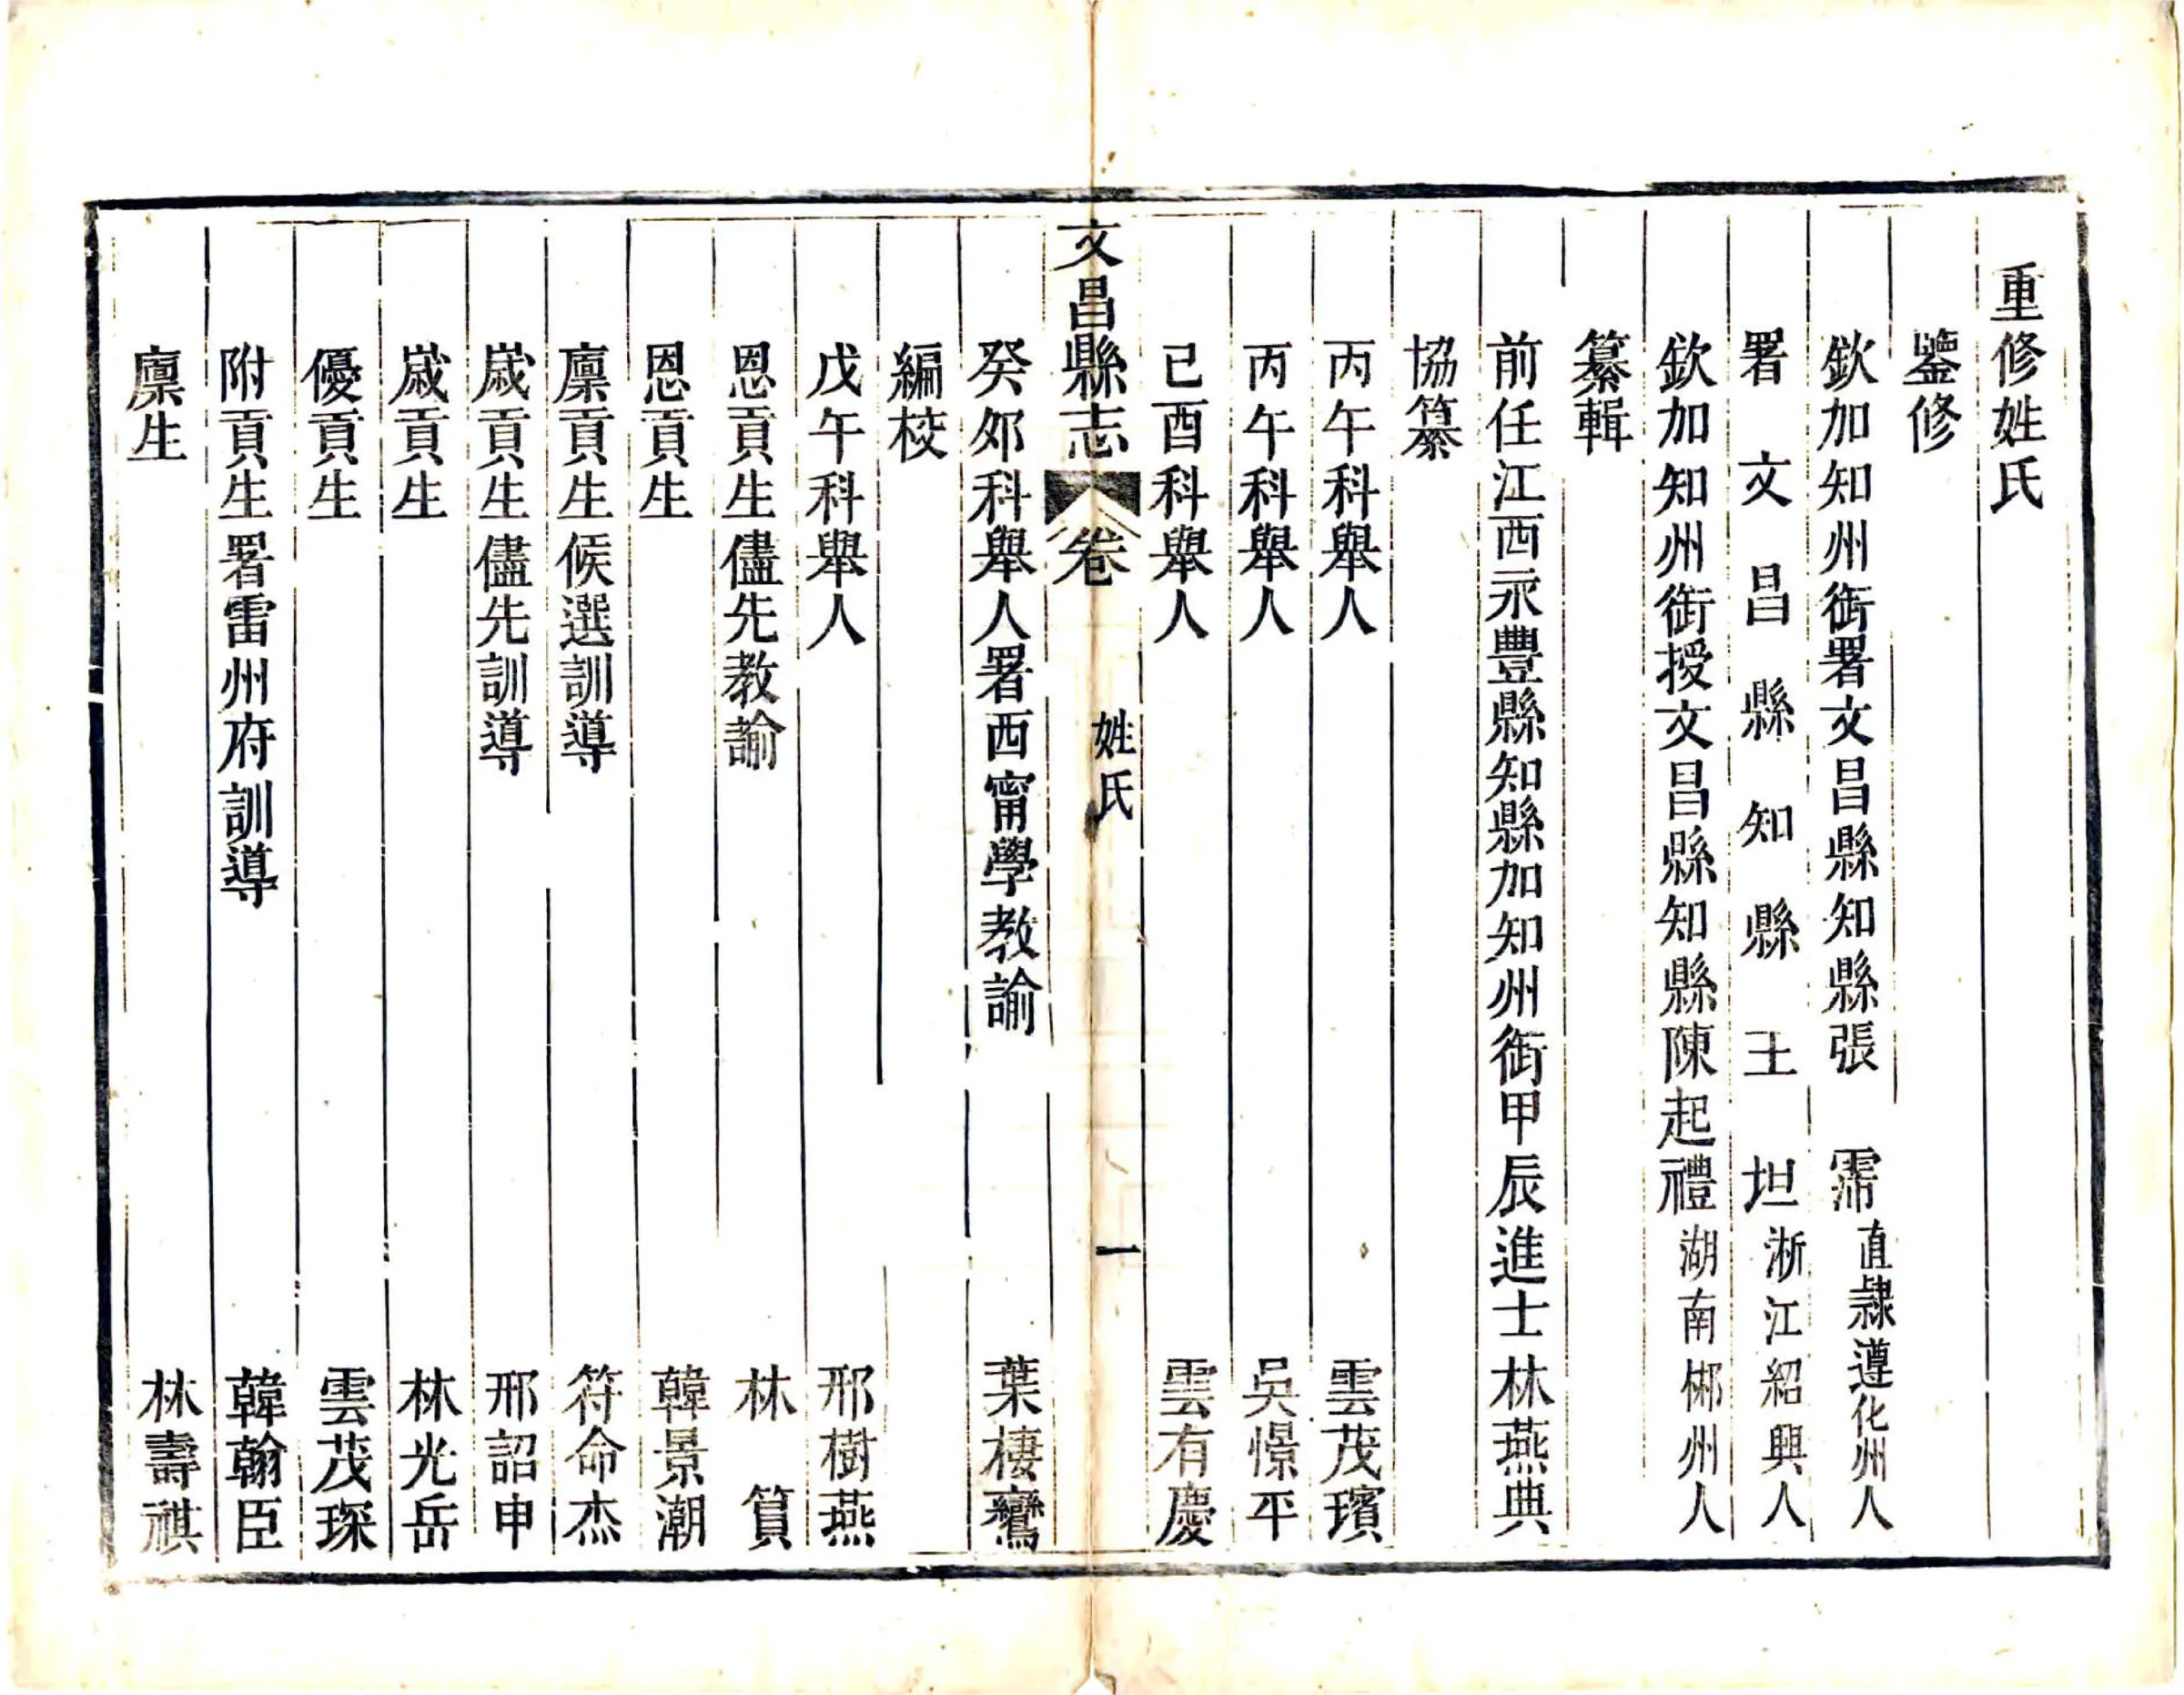 重修姓氏
鑒修
欽加知州銜署文昌縣知縣張　霈直隸遵化州人
署文昌縣知縣王坦浙江紹興人
欽加知州銜授文昌縣知縣陳起禮湖南郴州人
纂輯
前任江西永豐縣知縣加知州銜甲辰進士林燕典
協纂
丙午科舉人　雲茂璸
丙午科舉人　吳憬平
己酉科舉人　雲有慶
文昌縣志　卷　姓氏　一
癸夘科舉人署西甯學教諭　葉棲鸞
編校
戊午科舉人　邢樹燕
恩貢生儘先教諭　林　篔
恩貢生　韓景潮
廩貢生候選訓導　符命杰
歲貢生儘先訓導　邢詔申
歲貢生　林光岳
優貢生　雲茂琛
附貢生署雷州府訓導　韓翰臣
廩生　林壽祺